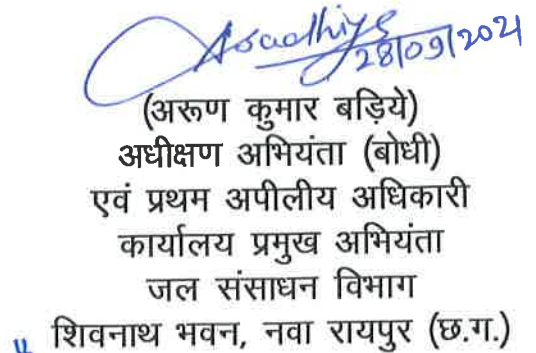 28/09/2021
(अरूण कुमार बड़िये)
अधीक्षण अभियंता (बोधी)
एवं प्रथम अपीलीय अधिकारी
कार्यालय प्रमुख अभियंता
जल संसाधन विभाग
शिवनाथ भवन, नवा रायपुर (छ.ग.)